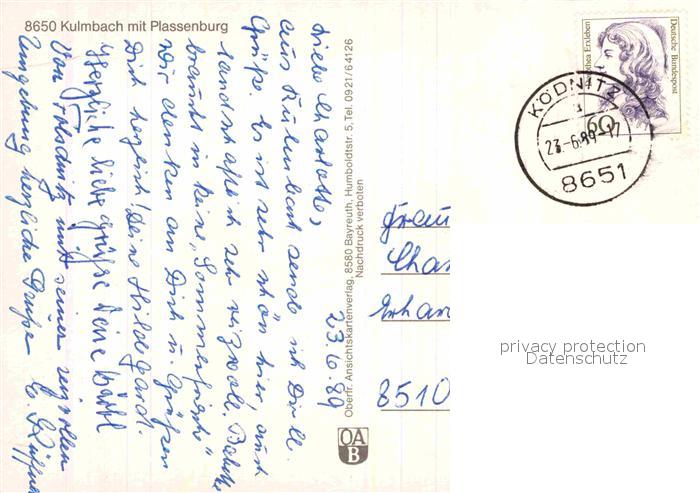 8650 Kulmbach mit Plassenburg
Liebe Charlotte,
aus Kulmbach sende ich Dir ll.
Grüße. Es ist sehr schön hier, auch
landschaftlich sehr reizvoll.
braucht in keine „Sommerfrische"
Wir denken an Dich u. Grüßen
Dich herzlich! Deine Hildegard.
Herzliche liebe Grüße Deine
Von mit seiner reizvollen
Umgebung herzliche Grüße E.
23.6.89
Oberfr. Ansichtskartenverlag, 8580 Bayreuth, Humboldtstr. 5, Tel. 0921/64126
Nachdruck verboten
OA
B
Deutsche Bundespost
Dorothea Erxleben
60
KÖDNITZ
a
23.-6.89-17
8651
Frau
Char
Erhar
8510
privacy protection
Datenschutz